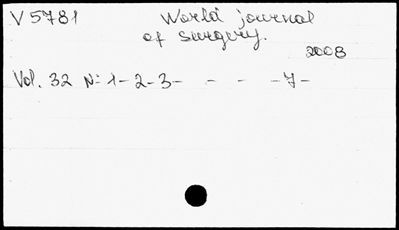 V 5781 World journal
of surgery.
2008
Vol. 32 N: 1-2-3- - - -7-